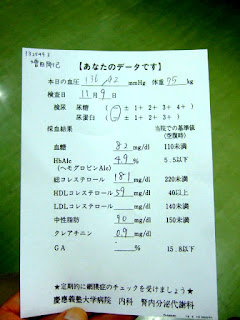 【あなたのデータです】
本日の血圧 136/92 mmHg 体重 75 kg
検査日 11月 9日
検尿 尿糖 (－ ± 1+ 2+ 3+ 4+)
尿蛋白 (－ ± 1+ 2+ 3+)
採血結果 当院での基準値
(空腹時)
血糖 82 mg/dl 110未満
HbAlc 4.9 % 5.5以下
(ヘモグロビンAlc)
総コレステロール 181 mg/dl 220未満
HDLコレステロール 59 mg/dl 40以上
LDLコレステロール mg/dl 140未満
中性脂肪 90 mg/dl 150未満
クレアチニン 0.9 mg/dl
GA % 15.8以下
★定期的に網膜症のチェックを受けましょう★
慶應義塾大学病院 内科 腎内分泌代謝科